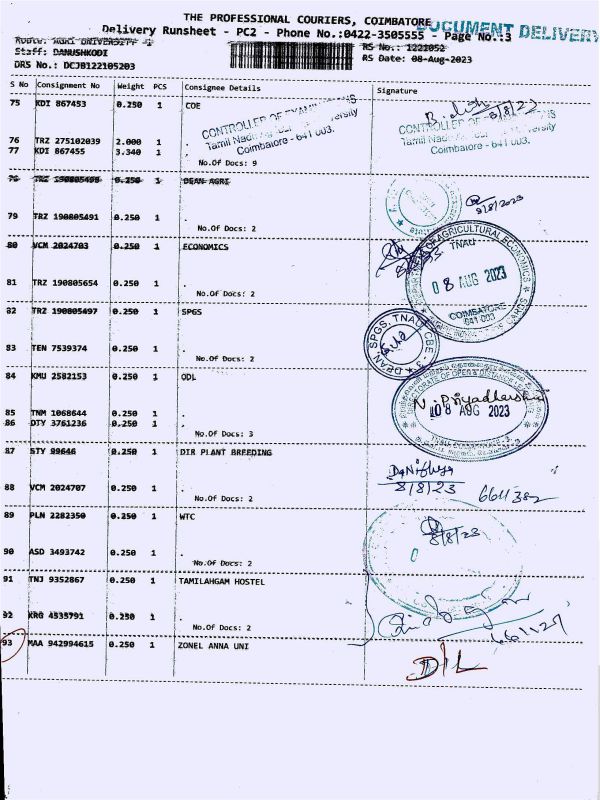 THE PROFESSIONAL COURIERS, COIMBATORE
DOCUMENT DELIVERY
Delivery Runsheet - PC2 - Phone No.:0422-3505555 - Page No.:3
Route: AGRI UNIVERSITY
RS No.: 1221052
Staff: DANUSHKODI
RS Date: 08-Aug-2023
DRS No.: DCJB122105203
S No Consignment No Weight PCS Consignee Details Signature
75 KDI 867453 0.250 1 COE
8/8/23
CONTROLLER OF EXAMINATIONS
Coimbatore - 641 003.
CONTROLLER OF EXAMINATIONS
Coimbatore - 641 003.
76 TRZ 275102039 2.000 1 .
77 KDI 867455 3.340 1 .
No.Of Docs: 9
78 TRZ 190805498 0.250 1 DEAN AGRI
8/8/2023
79 TRZ 190805491 0.250 1 .
No.Of Docs: 2
80 VCM 2024703 0.250 1 ECONOMICS
AGRICULTURAL ECONOMICS
TNAU
08 AUG 2023
COIMBATORE
641 003
81 TRZ 190805654 0.250 1 .
No.Of Docs: 2
82 TRZ 190805497 0.250 1 SPGS
DEAN, SPGS, TNAU, CBE - 3
83 TEN 7539374 0.250 1 .
No.Of Docs: 2
84 KMU 2582153 0.250 1 ODL
DIRECTORATE OF OPEN & DISTANCE LEARNING
N. Priyadharshini
08 AUG 2023
85 TNM 1068644 0.250 1 .
86 DTY 3761236 0.250 1 .
No.Of Docs: 3
87 STY 99646 0.250 1 DIR PLANT BREEDING
8/8/23
6611382
88 VCM 2024707 0.250 1 .
No.Of Docs: 2
89 PLN 2282350 0.250 1 WTC
8/8/23
90 ASD 3493742 0.250 1 .
No.Of Docs: 2
91 TNJ 9352867 0.250 1 TAMILAHGAM HOSTEL
92 KRG 4535791 0.250 1 .
No.Of Docs: 2
93 MAA 942994615 0.250 1 ZONEL ANNA UNI
D/L